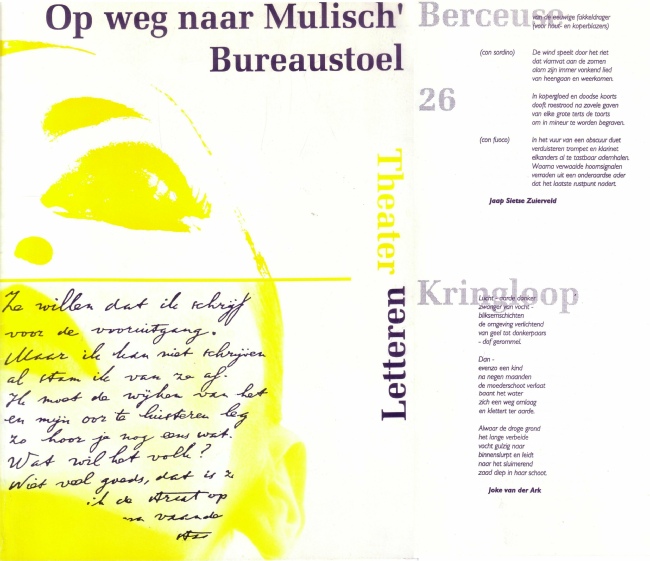 Op weg naar Mulisch'
Bureaustoel
Theater
Letteren
Ze willen dat ik schrijf
voor de vooruitgang.
Maar ik kan niet schrijven
al stam ik van ze af.
Ik moet de wijken van het
en mijn oor te luisteren leg
Zo hoor je nog eens wat.
Wat wil het volk?
Niet veel goeds, dat is ze
ik de straat op
vaande
Berceuse
26
van de eeuwige fakkeldrager
(voor hout- en koperblazers)
(con sordino) De wind speelt door het riet
dat vlamvat aan de zomen
alom zijn immer vonkend lied
van heengaan en weerkomen.
In kopergloed en doodse koorts
dooft roestrood na zovele gaven
van elke grote terts de toorts
om in mineur te worden begraven.
(con fuoco) In het vuur van een obscuur duet
verduisteren trompet en klarinet
elkanders al te tastbaar ademhalen.
Waarna verwaaide hoornsignalen
verraden uit een onderaardse ader
dat het laatste rustpunt nadert.
Jaap Sietse Zuierveld
Kringloop
Lucht - aarde donker
zwanger van vocht -
bliksemschichten
de omgeving verlichtend
van geel tot donkerpaars
- dof gerommel.
Dan -
evenzo een kind
na negen maanden
de moederschoot verlaat
baant het water
zich een weg omlaag
en klettert ter aarde.
Alwaar de droge grond
het lange verbeide
vocht gulzig naar
binnenslurpt en leidt
naar het sluimerend
zaad diep in haar schoot.
Joke van der Ark